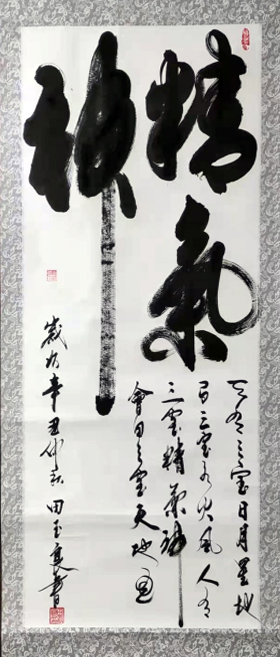 精氣
神
天有三宝日月星地
有三宝水火风人有
三宝精氣神
會用三宝天地通
歲次辛丑仲春 田玉良書